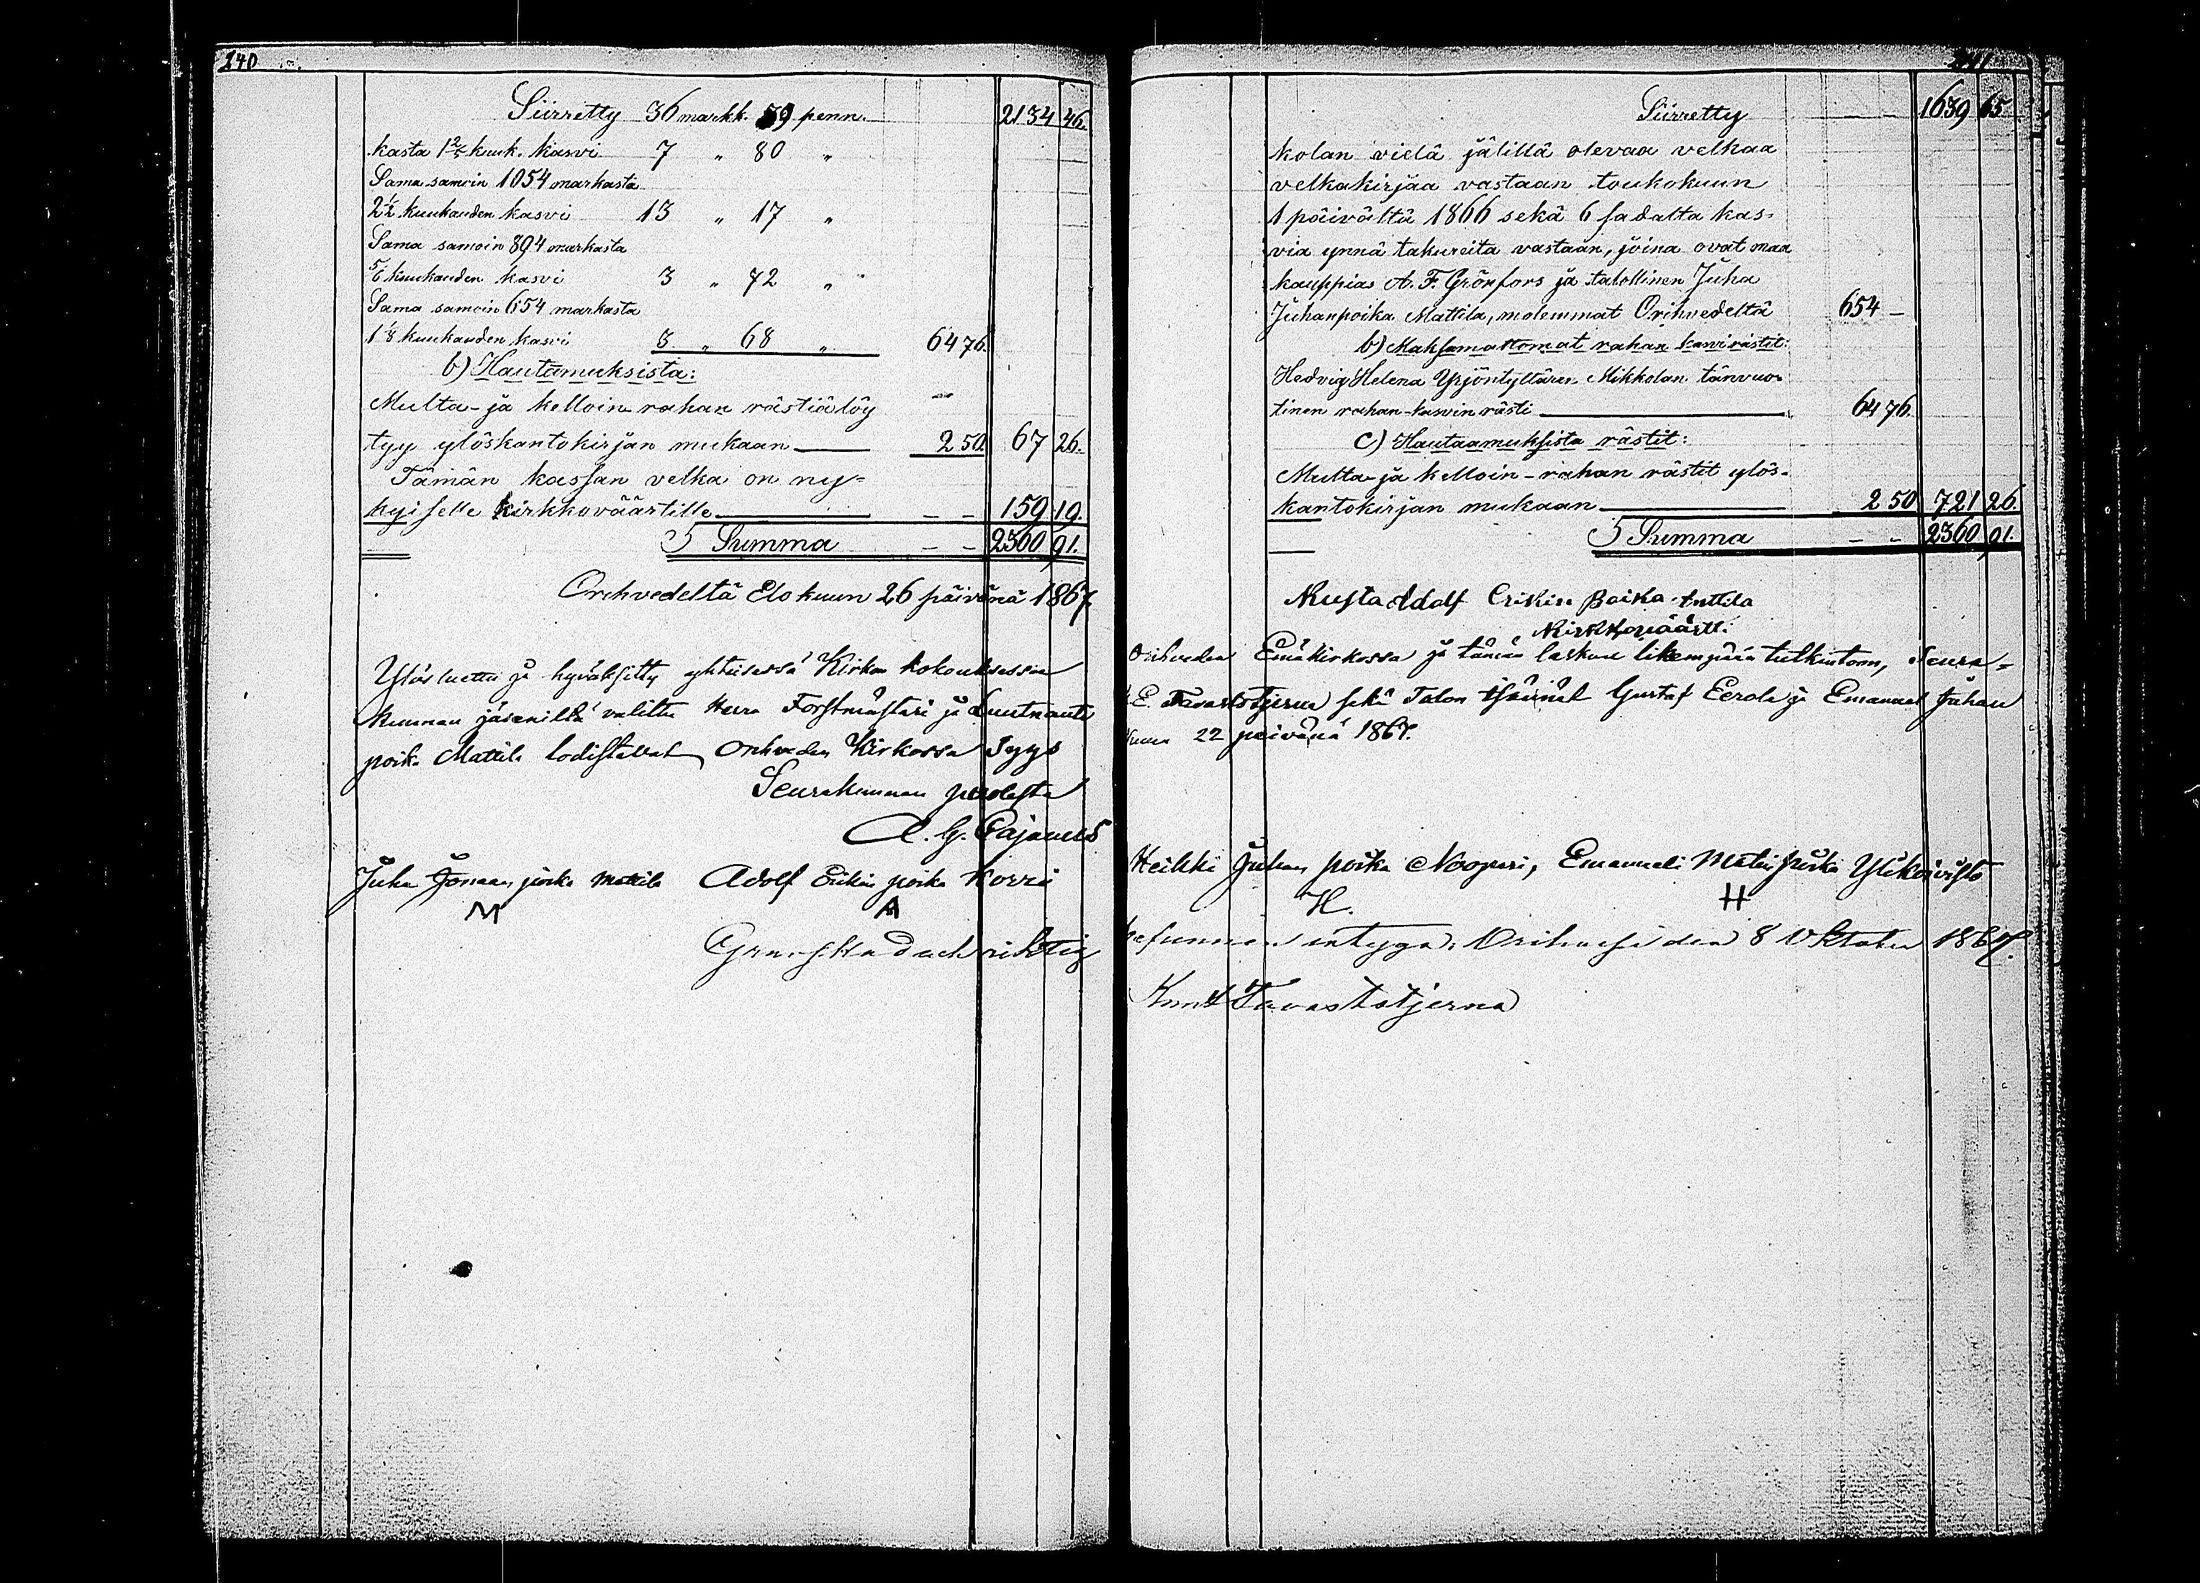 240
Siirretty 36 markk. 59 penn. 2134 46.
kasta 1 2/5 kuuk. kasvi 7 " 80 "
Sama samoin 1054 markasta
2 1/2 kuukauden kasvi 13 " 17 "
Sama samoin 894 markasta
5/6 kuukauden kasvi 3 " 72 "
Sama samoin 654 markasta
kuukauden kasvi 8 " 68 " 64 76.
b) Hautamuksista:
Multa- ja kelloin-rahan rästiä löy
tyy ylöskantokirjan mukaan 2 50. 67 26.
Tämän kassan velka on ny-
kyiselle kirkkoväärtille - - 159 19.
Summa - - 2360 91.
Orihvedeltä Elokuun 26 päivänä 1867.
Ylösluettu ja hyväksitty yhteisessä Kirkon kokouksessa
kunnan jäsenillä valittu Herra Forstmästari ja Luutnantti
poika Mattila todistavat, Orihveden Kirkossa Syys
Seurakunnan puolesta
A. G. Pajunen
Juha Jonaan poika Mattila Adolf Erikin poika Korri
M A
Granskad och riktig
241
Siirretty - - 1639 65.
kolan vielä jälillä olevaa velkaa
velkakirjaa vastaan toukokuun
1 päivältä 1866 sekä 6 sadalta kas-
via ynnä takureita vastaan, joina ovat maa
kauppias A. F. Grönfors ja talollinen Juha
Juhanpoika Mattila, molemmat Orihvedeltä 654 -
b) Maksamattomat rahan kasvirästit:
Hedvig Helena Yrjöntyttären Mikkolan tänvuo-
tinen rahan-kasvin rästi 64 76.
c) Hautaamuksista rästit:
Multa- ja kelloin-rahan rästit ylös-
kantokirjan mukaan 2 50 721 26.
Summa - - 2360 91.
Kusta Adolf Erikin Poika Anttila
Kirkkoväärtti
Orihveden Emäkirkossa ja tämän laskun likempään tutkintoon, Seura-
E. Tavaststjerna sekä Talon Gustaf Eerola ja Emanuel Juhan
kuun 22 päivänä 1867.
Heikki Juhan poika Noopuri, Emanueli Matin poika Ylikoivisto
H. H
befunnen intygar, Orihvesi den 8 Oktober 1867.
Knut Tavaststjerna